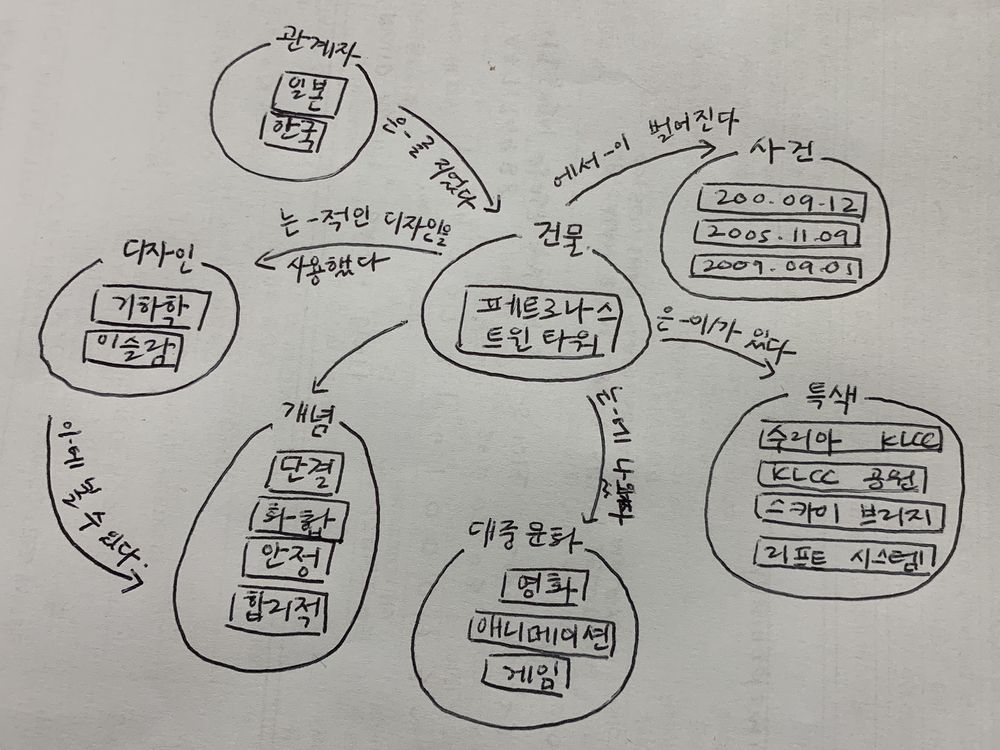 관계자
일본
한국
은-를 지었다
에서-이 벌어진다
사건
200.09.12
2005.11.09
2009.09.01
는-적인 디자인을
사용했다
건물
페트로나스
트윈 타워
디자인
기하학
이슬람
은-이/가 있다
특색
수리아 KLCC
KLCC 공원
스카이 브리지
리프트 시스템
개념
단결
화합
안정
합리적
볼 수 있다.
대중문화
영화
애니메이션
게임